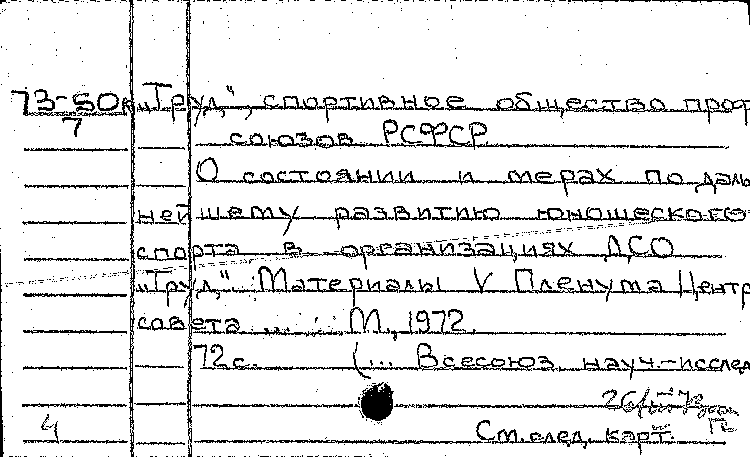 73-50к „Труд", спортивное общество проф
7
союзов РСФСР
О состоянии и мерах по даль
нейшему развитию юношеского
спорта в организациях ДСО
„Труд". Материалы V Пленума Центр
совета ... М., 1972.
72 с. (... Всесоюз. науч.-исслед
4 См. след. карт.